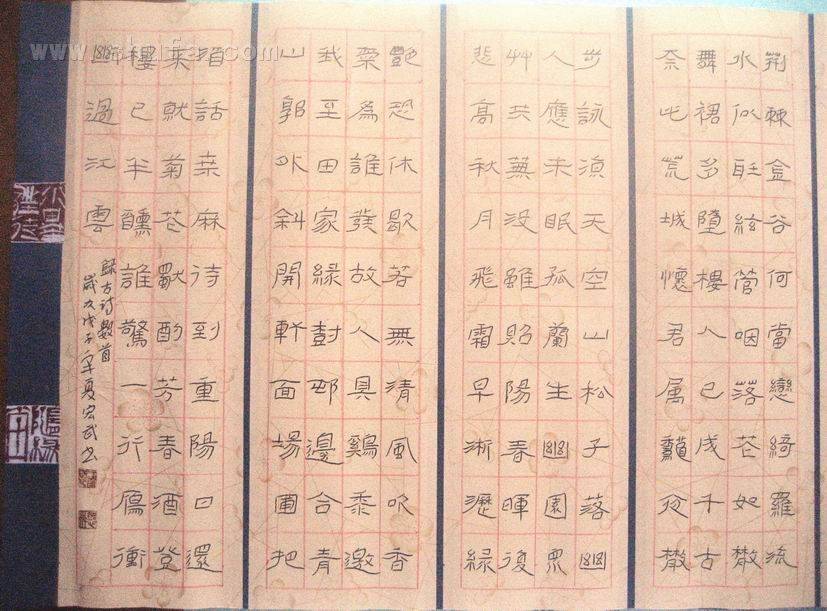 荆棘金谷何當戀綺羅流
水似絃管咽落花如散
舞裙多墮樓人已成千古
奈此荒城懷君屬秋夜散
步詠涼天空山松子落幽
人應未眠孤蘭生幽園眾
艸共蕪没雖照陽春暉復
悲高秋月飛霜早淅瀝綠
艷恐休歇若無清風吹香
氣為誰發故人具鷄黍邀
我至田家緑樹邨邊合青
山郭外斜開軒面場圃把
酒話桑麻待到重陽日還
来就菊花獻酌芳春酒登
樓已半醺誰驚一行雁衝
斷過江雲
録古詩數首
歲次戊子年夏宏武書